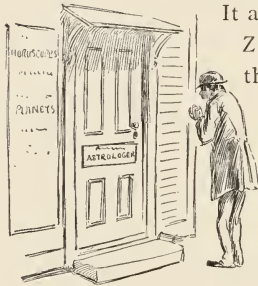 It a
Z
th
HOROSCOPES
PLANETS
ASTROLOGER